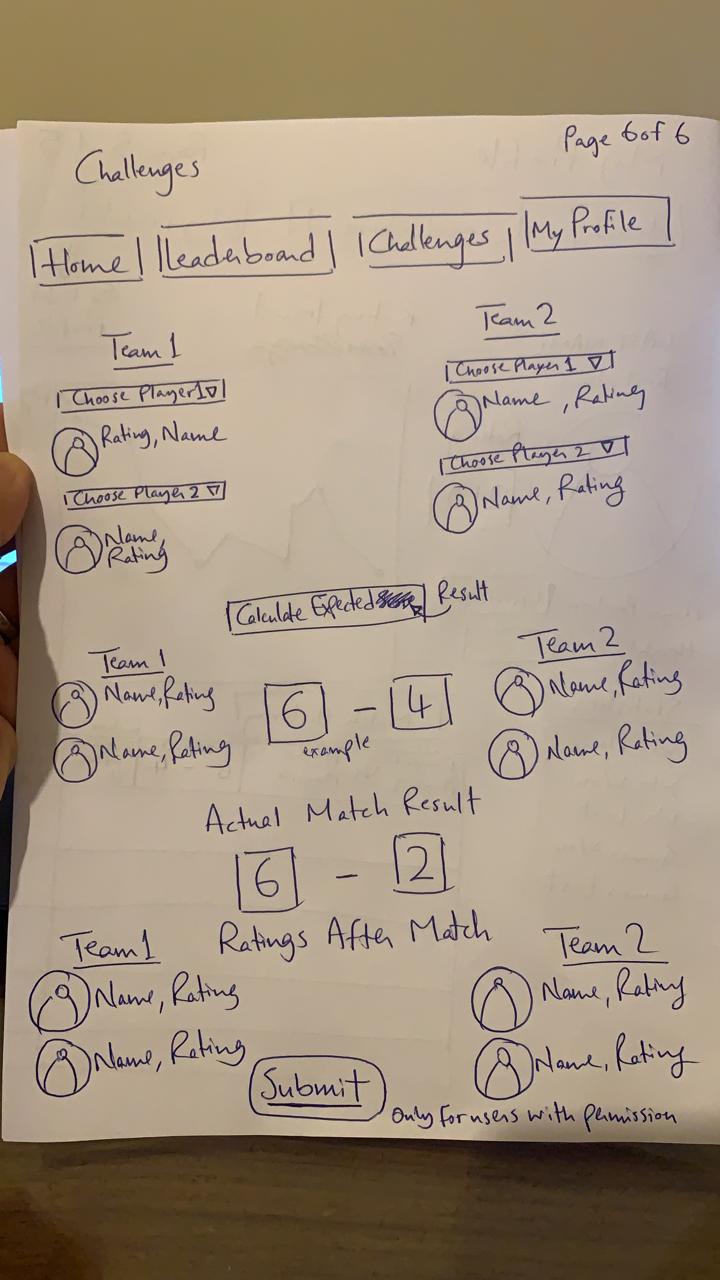 Page 6 of 6
Challenges
Home Leaderboard Challenges My Profile
Team 1 Team 2
Choose Player 1 Choose Player 1
Rating, Name Name, Rating
Choose Player 2 Choose Player 2
Name, Rating Name, Rating
Calculate Expected Result
Team 1 Team 2
Name, Rating 6 - 4 Name, Rating
example
Name, Rating Name, Rating
Actual Match Result
6 - 2
Team 1 Ratings After Match Team 2
Name, Rating Name, Rating
Name, Rating Name, Rating
Submit
Only for users with permission